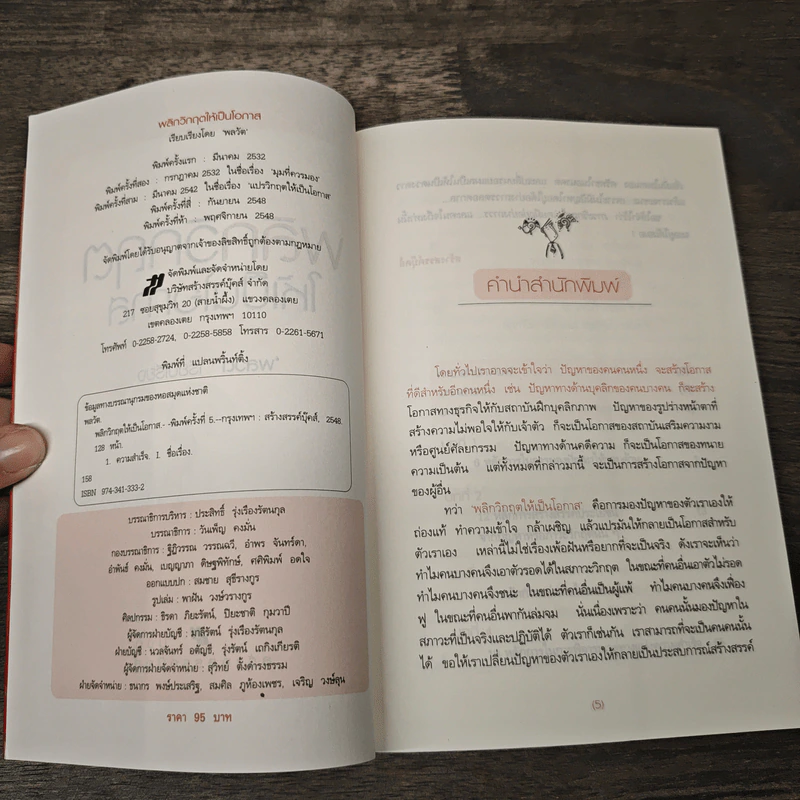 พลิกวิกฤตให้เป็นโอกาส
เรียบเรียงโดย 'พลวัต'
พิมพ์ครั้งแรก : มีนาคม 2532
พิมพ์ครั้งที่สอง : กรกฎาคม 2532 ในชื่อเรื่อง 'มุมที่ควรมอง'
พิมพ์ครั้งที่สาม : มีนาคม 2542 ในชื่อเรื่อง 'แปรวิกฤตให้เป็นโอกาส'
พิมพ์ครั้งที่สี่ : กันยายน 2548
พิมพ์ครั้งที่ห้า : พฤศจิกายน 2548
จัดพิมพ์โดยได้รับอนุญาตจากเจ้าของลิขสิทธิ์ถูกต้องตามกฎหมาย
จัดพิมพ์และจัดจำหน่ายโดย
บริษัทสร้างสรรค์บุ๊คส์ จำกัด
217 ซอยสุขุมวิท 20 (สายน้ำผึ้ง) แขวงคลองเตย
เขตคลองเตย กรุงเทพฯ 10110
โทรศัพท์ 0-2258-2724, 0-2258-5858 โทรสาร 0-2261-5671
พิมพ์ที่ แปลนพริ้นท์ติ้ง
ข้อมูลทางบรรณานุกรมของหอสมุดแห่งชาติ
พลวัต.
พลิกวิกฤตให้เป็นโอกาส.--พิมพ์ครั้งที่ 5.--กรุงเทพฯ : สร้างสรรค์บุ๊คส์, 2548.
128 หน้า.
1. ความสำเร็จ. I. ชื่อเรื่อง.
158
ISBN 974-341-333-2
บรรณาธิการบริหาร : ประสิทธิ์ รุ่งเรืองรัตนกุล
บรรณาธิการ : วันเพ็ญ คงมั่น
กองบรรณาธิการ : ฐิฎิวรรณ วรรณฉวี, อำพร จันทร์ดา,
อำพันธ์ คงมั่น, เบญญาภา ดิษฐพิทักษ์, ศศิพิมพ์ อดใจ
ออกแบบปก : สมชาย สุธีรางกูร
รูปเล่ม : พาฝัน วงษ์วรางกูร
ศิลปกรรม : ธิรดา ภิยะรัตน์, ปิยะชาติ กุมวาปี
ผู้จัดการฝ่ายบัญชี : มาลีรัตน์ รุ่งเรืองรัตนกุล
ฝ่ายบัญชี : นวลจันทร์ อตัญที, รุ่งรัตน์ เถกิงเกียรติ
ผู้จัดการฝ่ายจัดจำหน่าย : สุวิทย์ ตั้งดำรงธรรม
ฝ่ายจัดจำหน่าย : ธนากร พงษ์ประเสริฐ, สมศิล ภูห้องเพชร, เจริญ วงษ์ลุน
ราคา 95 บาท
คำนำสำนักพิมพ์
โดยทั่วไปเราอาจจะเข้าใจว่า ปัญหาของคนคนหนึ่ง จะสร้างโอกาส
ที่ดีสำหรับอีกคนหนึ่ง เช่น ปัญหาทางด้านบุคลิกของคนบางคน ก็จะสร้าง
โอกาสทางธุรกิจให้กับสถาบันฝึกบุคลิกภาพ ปัญหาของรูปร่างหน้าตาที่
สร้างความไม่พอใจให้กับเจ้าตัว ก็จะเป็นโอกาสของสถาบันเสริมความงาม
หรือศูนย์ศัลยกรรม ปัญหาทางด้านคดีความ ก็จะเป็นโอกาสของทนาย
ความเป็นต้น แต่ทั้งหมดที่กล่าวมานี้ จะเป็นการสร้างโอกาสจากปัญหา
ของผู้อื่น
ทว่า 'พลิกวิกฤตให้เป็นโอกาส' คือการมองปัญหาของตัวเราเองให้
ถ่องแท้ ทำความเข้าใจ กล้าเผชิญ แล้วแปรมันให้กลายเป็นโอกาสสำหรับ
ตัวเราเอง เหล่านี้ไม่ใช่เรื่องเพ้อฝันหรือยากที่จะเป็นจริง ดังเราจะเห็นว่า
ทำไมคนบางคนจึงเอาตัวรอดได้ในสภาวะวิกฤต ในขณะที่คนอื่นเอาตัวไม่รอด
ทำไมคนบางคนจึงชนะ ในขณะที่คนอื่นเป็นผู้แพ้ ทำไมบางคนจึงเฟื่อง
ฟู ในขณะที่คนอื่นพากันล่มจม นั่นเนื่องเพราะว่า คนคนนั้นมองปัญหาใน
สภาวะที่เป็นจริงและปฏิบัติได้ ตัวเราก็เช่นกัน เราสามารถที่จะเป็นคนคนนั้น
ได้ ขอให้เราเปลี่ยนปัญหาของตัวเราเองให้กลายเป็นประสบการณ์สร้างสรรค์
(5)